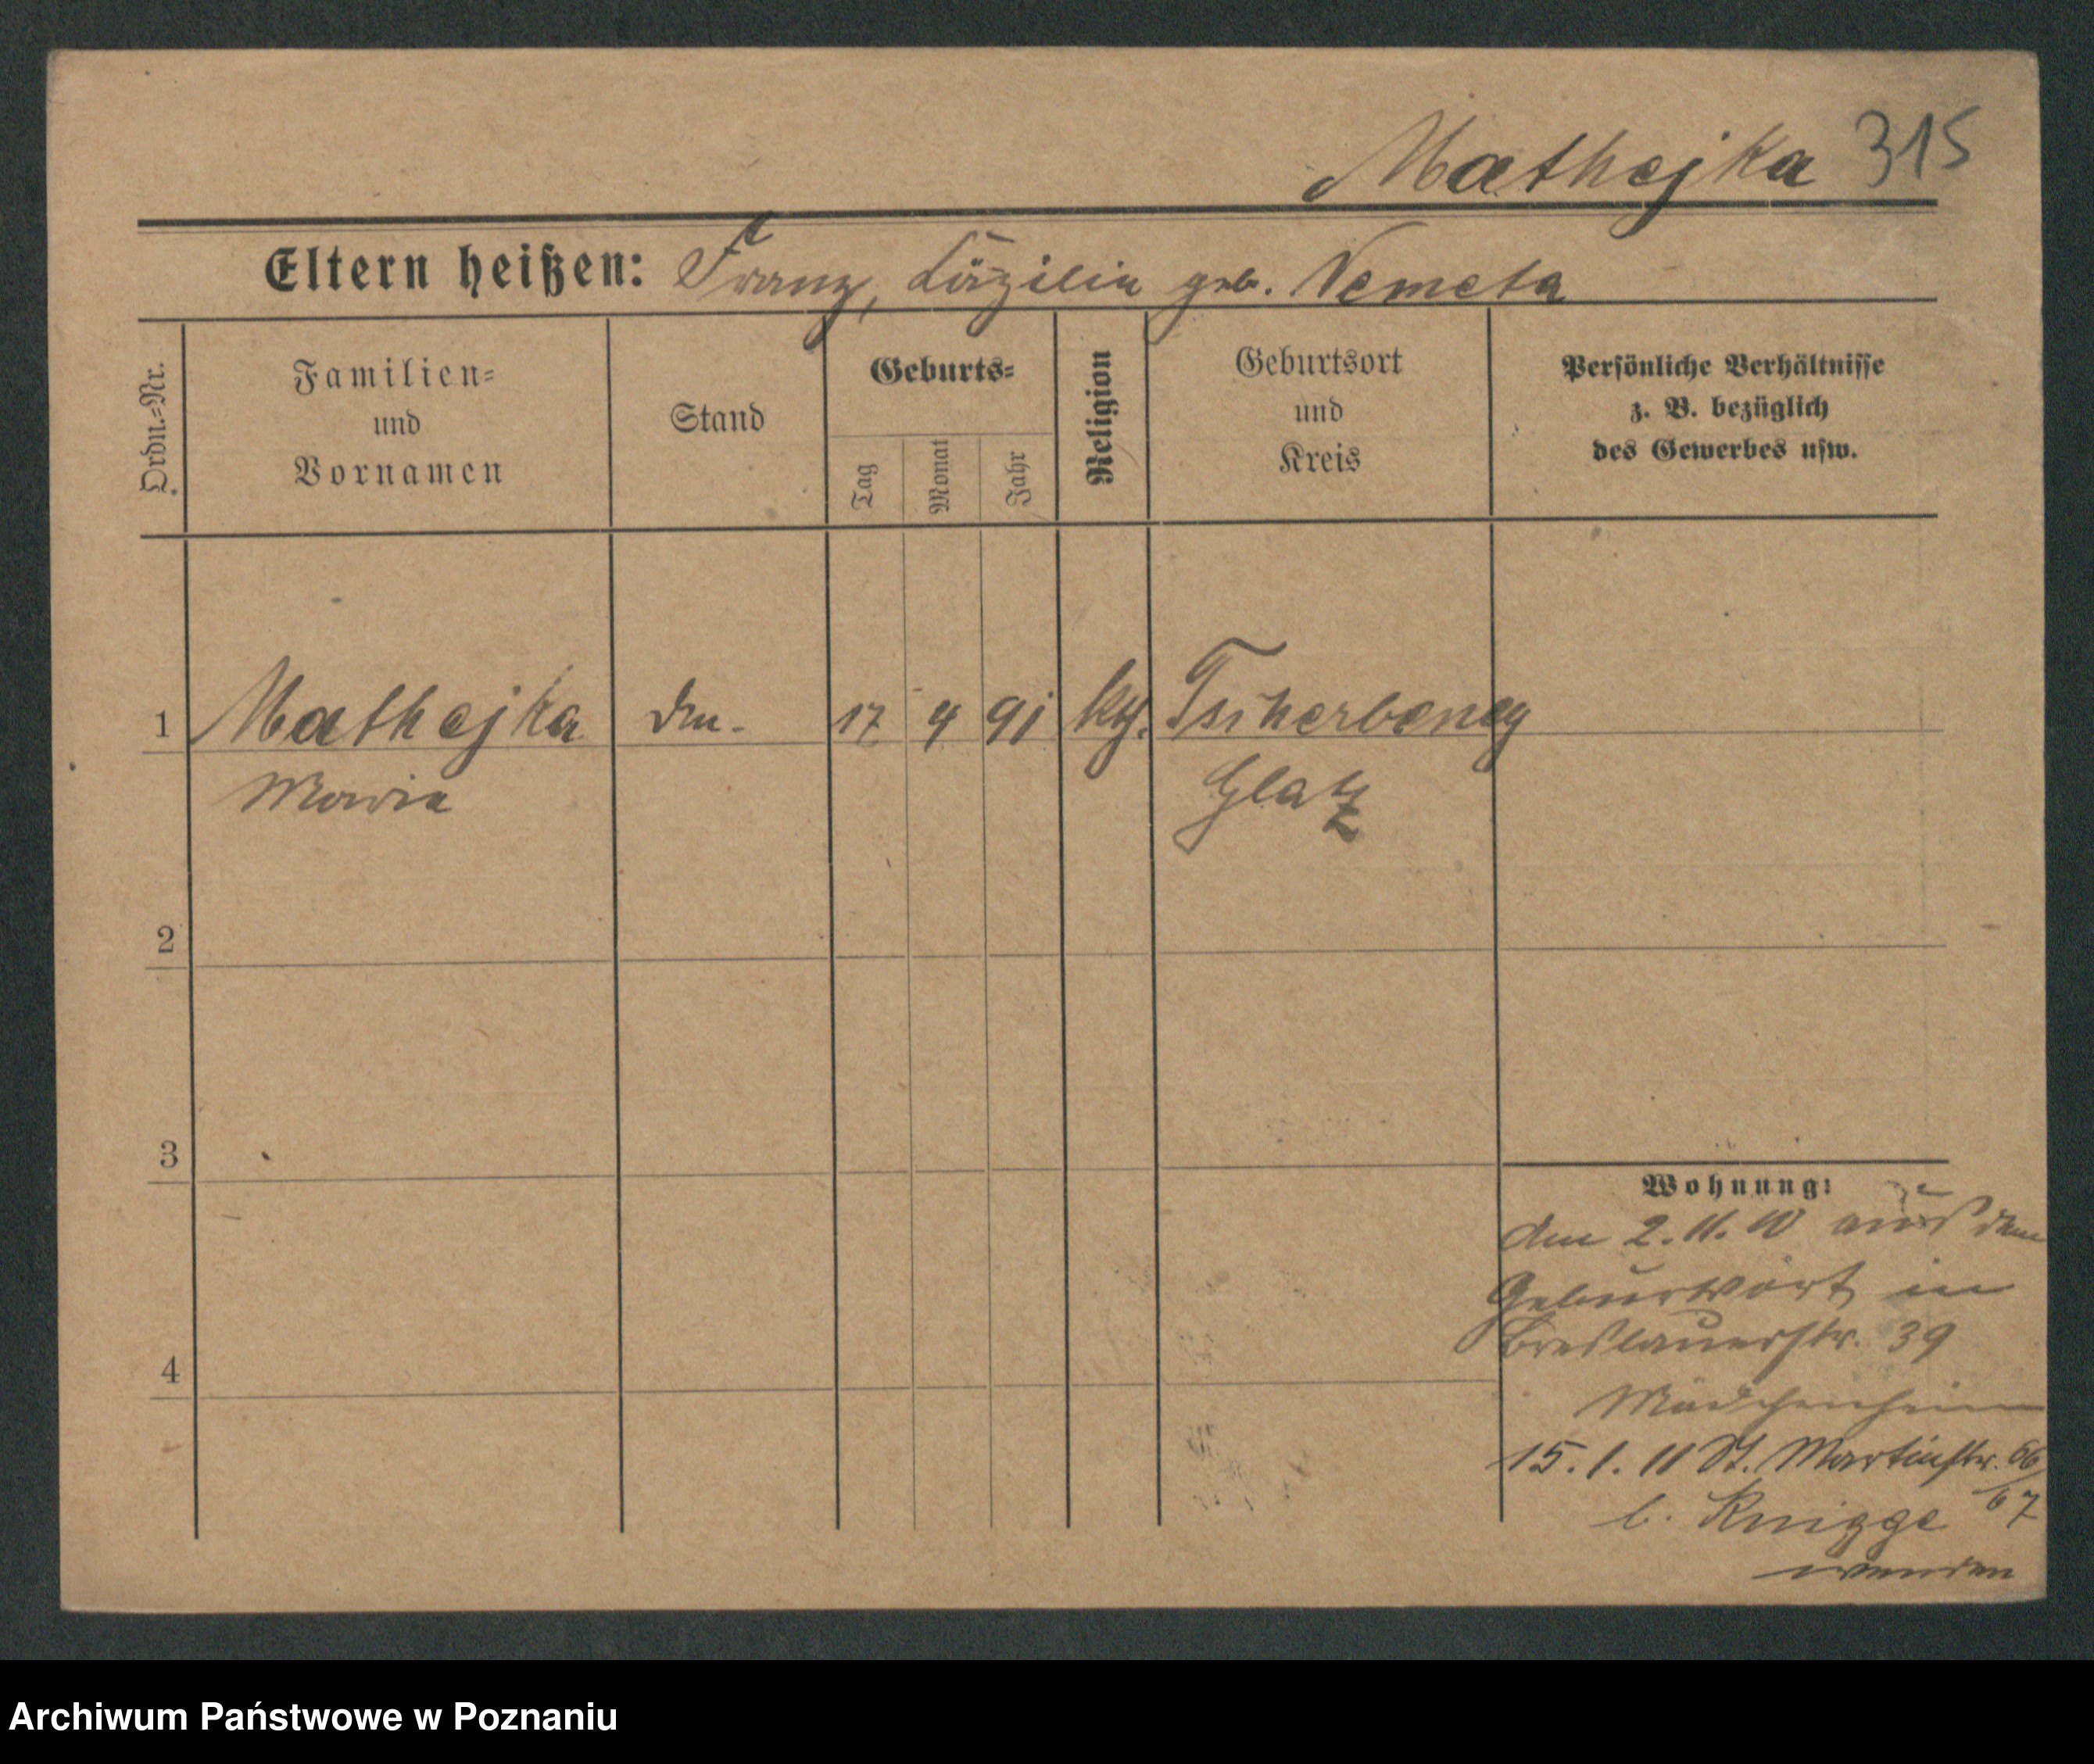 Mathejka 315
Eltern heißen: Franz, Cäzilia geb. Nemeta
Ordn.=Nr.
Familien=
und
Vornamen
Stand
Geburts=
Tag
Monat
Jahr
Religion
Geburtsort
und
Kreis
Persönliche Verhältnisse
z. B. bezüglich
des Gewerbes usw.
1 Mathejka 17 4 91 kg. Tscherbeney
Maria Glatz
2
3
4
Wohnung:
den 2.11.10 aus dem
Geburtsort in
Breslauerstr. 39
Mädchenheim
15.1.11 St. Martinstr. 66/67
b. Knigge
wenden
Archiwum Państwowe w Poznaniu